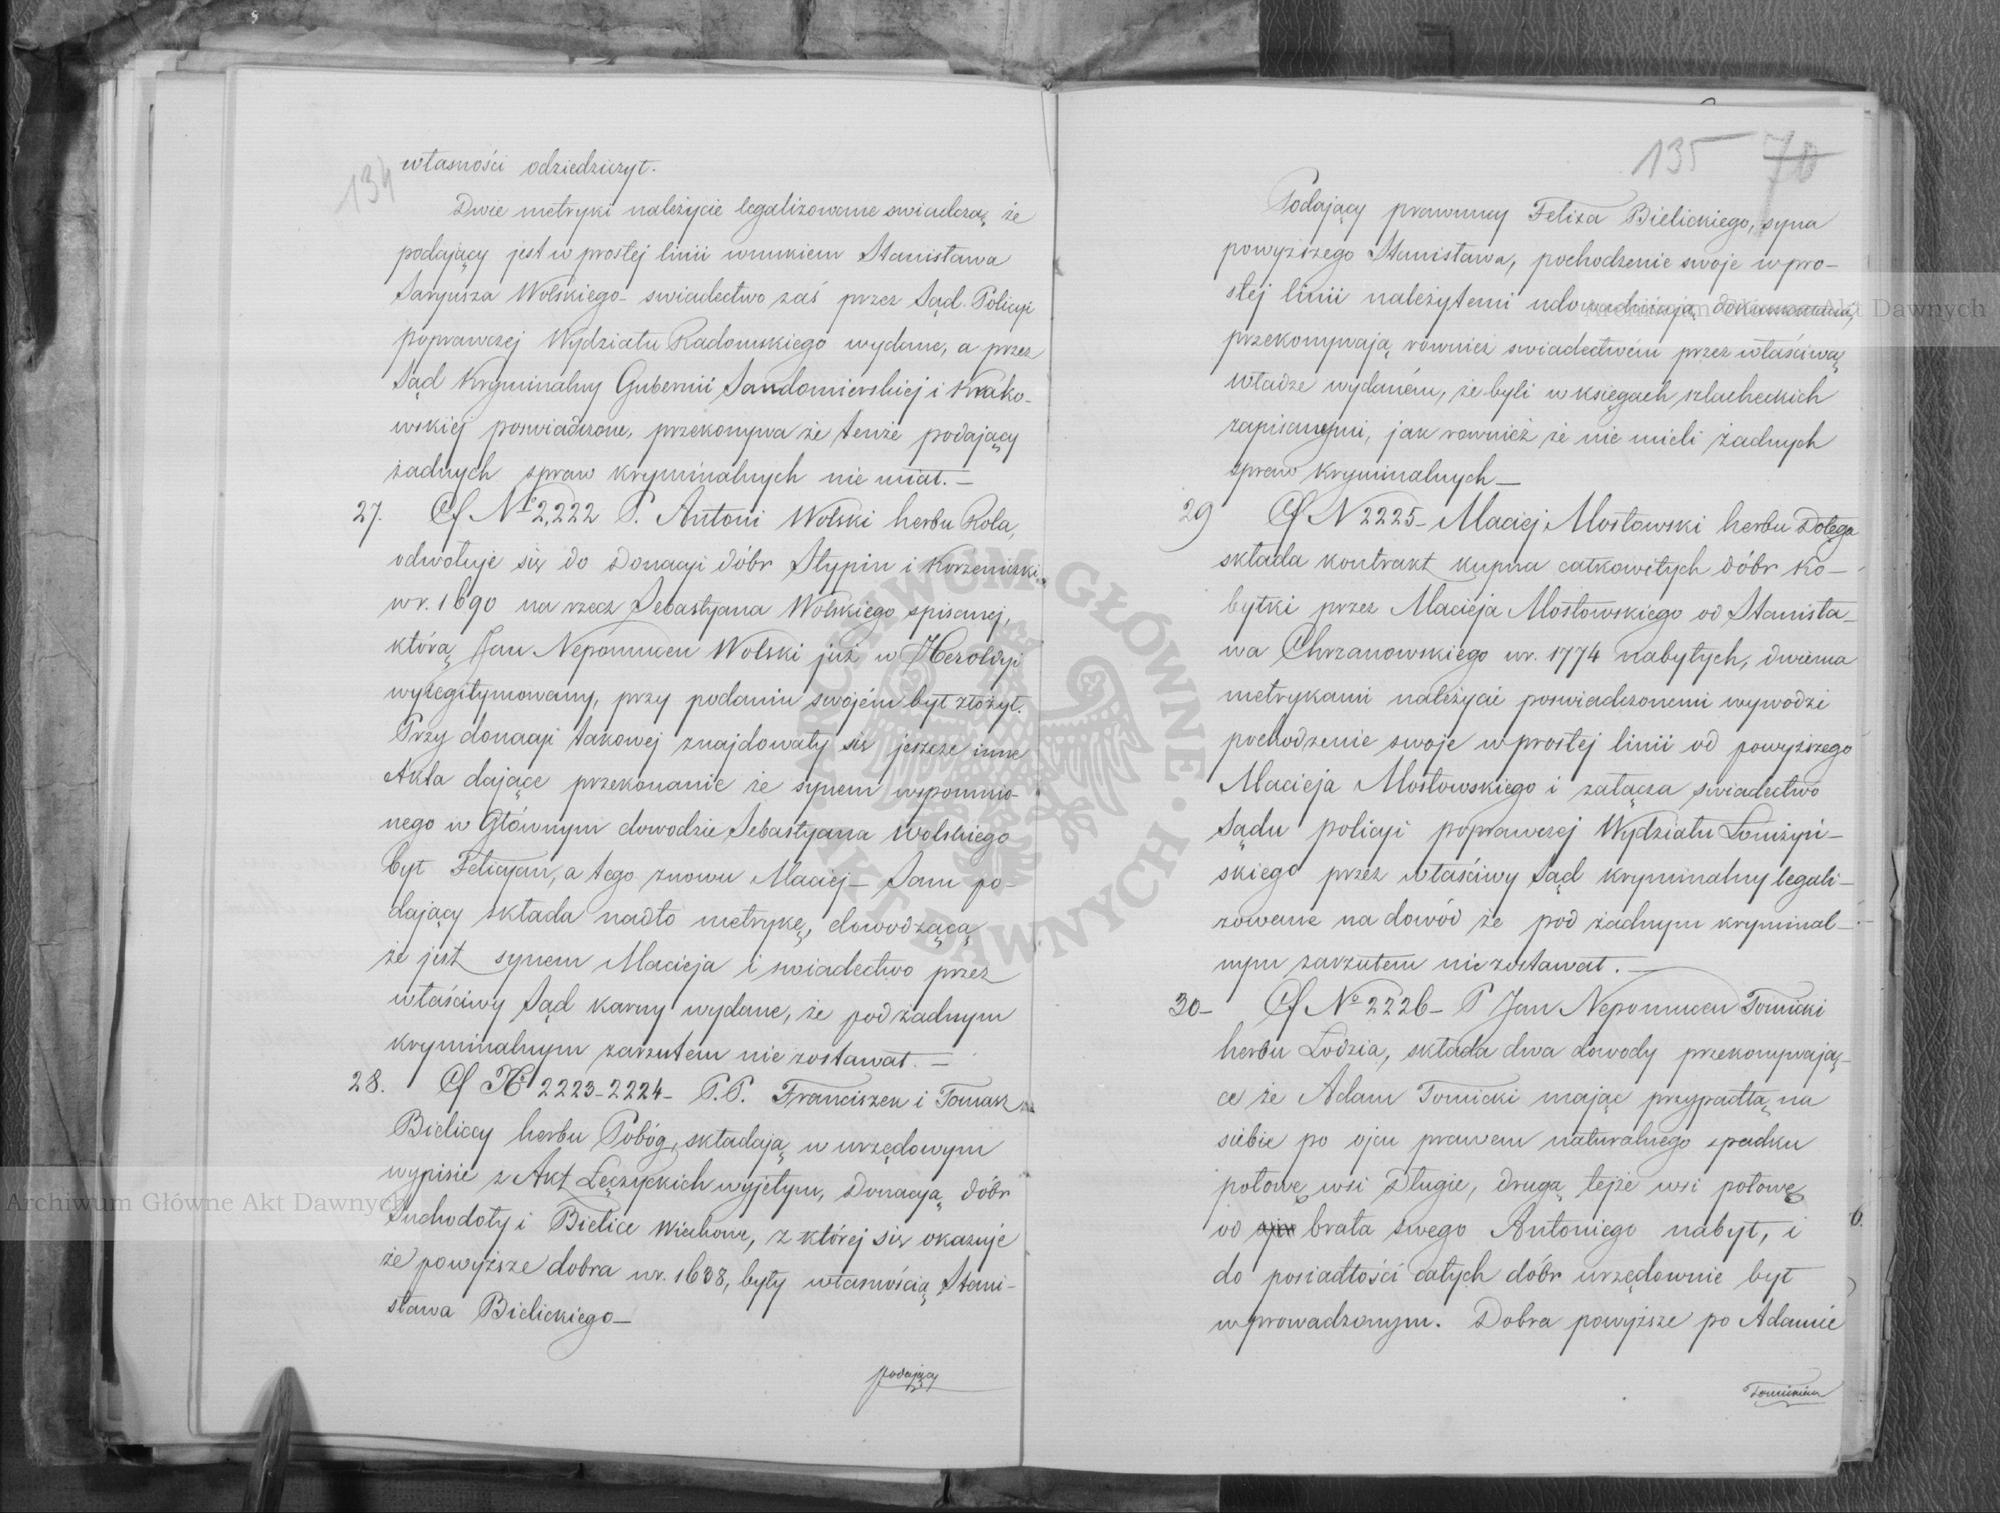 134
własności odziedziczył.
Dwie metryki należycie legalizowane swiadczą że
podający jest w prostej linii wnukiem Stanisława
Saryusza Wolskiego - swiadectwo zaś przez Sąd Policyi
poprawczej Wydziału Radomskiego wydane, a przez
Sąd Kryminalny Gubernii Sandomierskiej i Krako-
wskiej poswiadczone, przekonywa że tenże podający
żadnych spraw kryminalnych nie miał. —
27. Cf № 2,222 P. Antoni Wolski herbu Rola,
odwołuje się do Donacyi dóbr Stypin i Korzeniszki
w r. 1690 na rzecz Sebastyana Wolskiego spisanej,
którą Jan Nepomucen Wolski już w Heroldyi
wylegitymowany, przy podaniu swojém był złożył.
Przy donacyi takowej znajdowały się jeszcze inne
Akta dające przekonanie że synem wspomnio-
nego w Głównym dowodzie Sebastyana Wolskiego
był Felicyan, a tego znowu Maciej — Sam po-
dający składa nadto metrykę, dowodzącą
że jest synem Macieja i swiadectwo przez
właściwy Sąd karny wydane, że pod żadnym
kryminalnym zarzutem nie zostawał. —
28. Cf № 2223-2224- P.P. Franciszek i Tomasz
Bieliccy herbu Pobóg, składają w urzędowym
wypisie z Akt Łęczyckich wyjętym, Donacyą dóbr
Suchodoły i Bielice Wiechowe, z której się okazuje
że powyższe dobra w r. 1638, były własnością Stani-
sława Bielickiego —
podający
135 70
Podający prawnucy Felixa Bielickiego, syna
powyższego Stanisława, pochodzenie swoje w pro-
stej linii należytemi udowadniają dokumentami,
przekonywają również swiadectwém przez właściwą
władze wydaném, że byli w księgach szlacheckich
zapisanymi, jak rownież że nie mieli żadnych
spraw kryminalnych —
29 Cf N 2225- Maciej Mostowski herbu Dołęga
składa kontrakt kupna całkowitych dóbr Ko-
byłki przez Macieja Mostowskiego od Stanisła-
wa Chrzanowskiego w r. 1774 nabytych, dwiema
metrykami należycie poswiadczonemi wywodzi
pochodzenie swoje w prostej linii od powyższego
Macieja Mostowskiego i załącza swiadectwo
Sądu policyi poprawczej Wydziału Łomżyń-
skiego przez właściwy Sąd kryminalny legali-
zowane na dowód że pod żadnym kryminal-
nym zarzutem nie zostawał. —
30- Cf № 2226- P Jan Nepomucen Tomicki
herbu Łodzia, składa dwa dowody przekonywają-
ce że Adam Tomicki mając przypadłą na
siebie po ojcu prawem naturalnego spadku
połowę wsi Długie, drugą tejże wsi połowę
od brata swego Antoniego nabył, i
do posiadłości całych dóbr urzędownie był
wprowadzonym. Dobra powyższe po Adamie
Tomickim
6.
Archiwum Główne Akt Dawnych
Archiwum Główne Akt Dawnych
ARCHIWUM GŁÓWNE AKT DAWNYCH